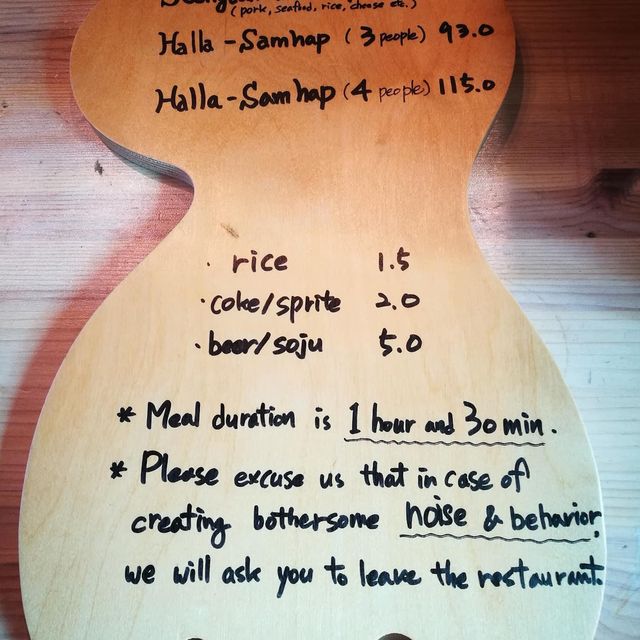 (pork, seafood, rice, cheese etc.)
Halla-Samhap (3 people) 93.0
Halla-Samhap (4 people) 115.0
· rice 1.5
· coke/sprite 2.0
· beer/soju 5.0
* Meal duration is 1 hour and 30 min.
* Please excuse us that in case of
creating bothersome noise & behavior,
we will ask you to leave the restaurant.